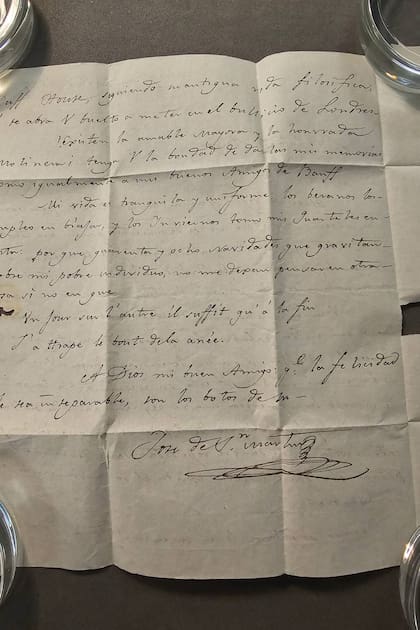 uff House, siguiendo mantigua vida filosofica,
se abra V buelto a meter en el bullicio de Londres
Existen la amable Mayora y la honrrada
tenga V la bondad de darlas mis memorias
omo igualmente a mis buenos Amigos de Banff
Mi vida es tranquila y uniforme los beranos los
mpleo en biajar, y los Ynviernos tomo mis Quarteles en
por que quarenta y ocho navidades que gravitan
obre mi pobre individuo, no me dejan pensar en otra
sa si no en que
Un Jour sur l'autre il suffit qu'á la fin
J'a trape le bout dela anée.
A Dios mi buen Amigo q.e la felicidad
le sea inseparable, son los botos de su
Jose de S.n Martin